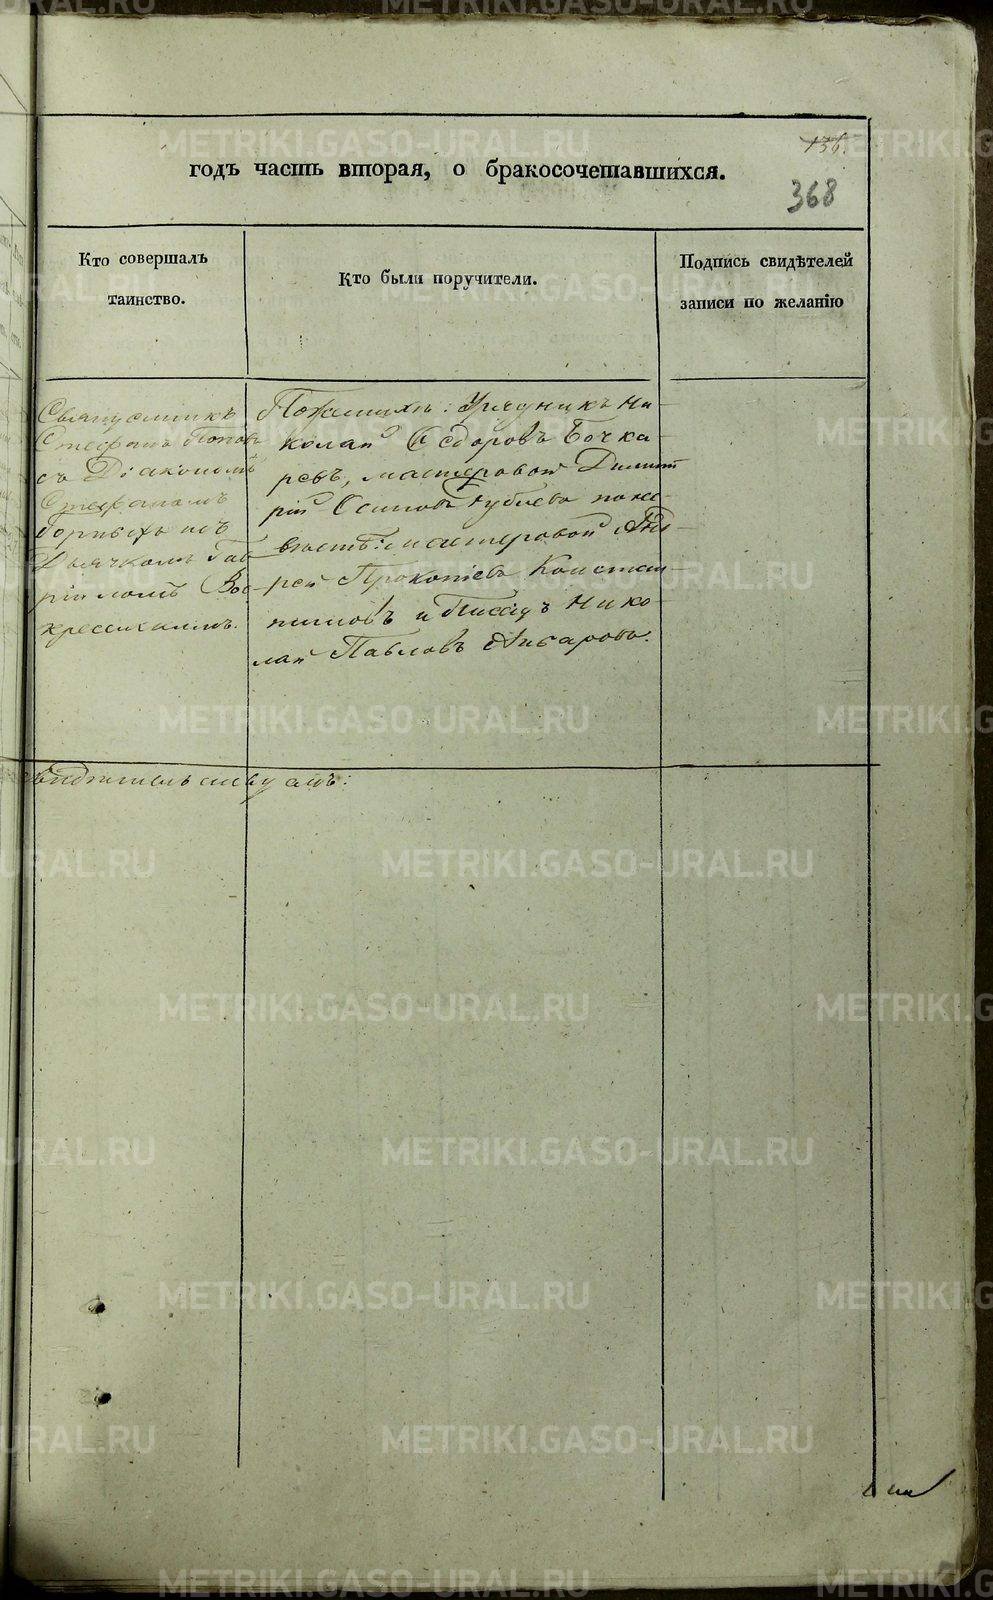 136.
годъ часть вторая, о бракосочетавшихся.
368
Кто совершалъ
таинство.
Кто были поручители.
Подпись свидѣтелей
записи по желанію
Священникъ
Стефанъ Поповъ
съ Діакономъ
Стефаномъ
Дьячкомъ Гав-
ріиломъ Вос-
кресенскимъ.
По женихѣ: Урядникъ Ни-
колай Ѳедоровъ Бочка-
ревъ, мастеровой Димит-
рій Осиповъ по не-
вѣстѣ: мастеровой Анд-
рей Прокопіевъ Констан-
тиновъ и Ни​ко-
лай Павловъ
METRIKI.GASO-URAL.RU